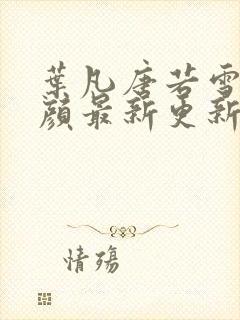 葉凡唐若雪
顏最新更新
情殤